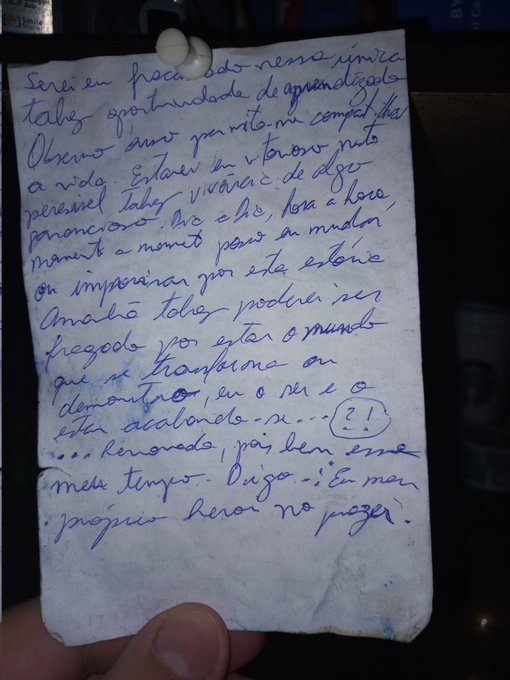 Serei eu fracassado nessa única
talvez oportunidade de aprendizado
Observo ouso permito-me compartilhar
a vida. Estarei eu vitorioso nisto
talvez vivência de algo
Dia a Dia, hora a hora,
momento a momento posso eu mudar
ou improvisar por esta estória
Amanhã talvez poderei ser
por estar o mundo
que se transforma ou
demonstra, eu o ser e o
estar acabando-se... ?!
... Renovado, pois bem esse
meu tempo. Digo -: "Eu meu
próprio herói no prazer.